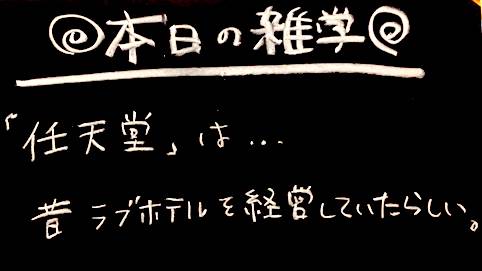 本日の雑学
「任天堂」は…
昔ラブホテルを経営していたらしい。